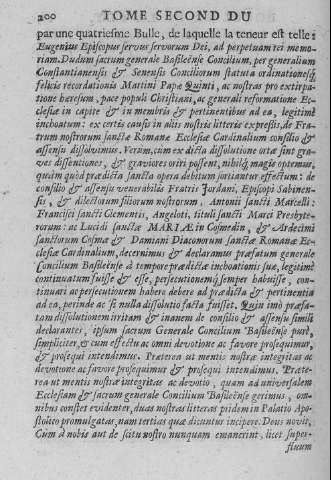 200 TOME SECOND DU
par une quatriesme Bulle, de laquelle la teneur est telle:
Eugenius Episcopus servus servorum Dei, ad perpetuam rei memo-
riam. Dudum sacrum generale Basileẽnse Concilium, per generalium
Constantiensis & Senensis Conciliorum statuta ordinationesq́,
felicis recordationis Martini Papæ Quinti, ac nostras pro extirpa-
tione hæresum, pace populi Christiani, ac generali reformatione Ec-
clesiæ in capite & in membris & pertinentibus ad ea, legitimè
inchoatum: ex certis causis in aliis nostris litteris expressis, de Fra-
trum nostrorum sanctæ Romanæ Ecclesiæ Cardinalium consilio &
assensu dissolvimus. Verum, cum ex dicta dissolutione ortæ sint gra-
ves dissentiones, & graviores oriri possent, nihilq́ magis optemus,
quàm quòd prædicta sancta opera debitum sortiantur effectum: de
consilio & assensu venerabilis Fratris Jordani, Episcopi Sabinen-
sis, & dilectorum filiorum nostrorum, Antonii sancti Marcelli:
Francisci sancti Clementis, Angeloti, tituli sancti Marci Presbyte-
rorum: ac Lucidi sanctæ MARIÆ in Cosmedin, & Ardecini
sanctorum Cosmæ & Damiani Diaconorum sanctæ Romanæ Ec-
clesiæ Cardinalium, decernimus & declaramus præfatum generale
Concilium Basileẽnse à tempore prædictæ inchoationis suæ, legitimè
continuatum fuisse & esse, persecutionemq́ semper habuisse, con-
tinuari ac persecutionem habere debere ad prædicta & pertinentia
ad ea, perinde ac si nulla dissolutio facta fuisset, Quin imò præfa-
tam dissolutionem irritam & inanem de consilio & assensu simili
declarantes, ipsum sacrum Generale Concilium Basileẽnse purè,
simpliciter, & cum effectu ac omni devotione ac favore prosequimur,
& prosequi intendimus. Præterea ut mentis nostræ integritas ac
devotione ac favore prosequimur & prosequi intendimus. Præte-
rea ut mentis nostræ integritas ac devotio, quam ad universalem
Ecclesiam & sacrum generale Concilium Basileẽnse gerimus, om-
nibus constet evidenter, duas nostras litteras pridem in Palatio Apo-
stolico promulgatas, nam tertias quæ dicuntur incipere. Deus novit,
Cùm à nobis aut de scitu nostro nunquam emanerint, licet super-
fluum